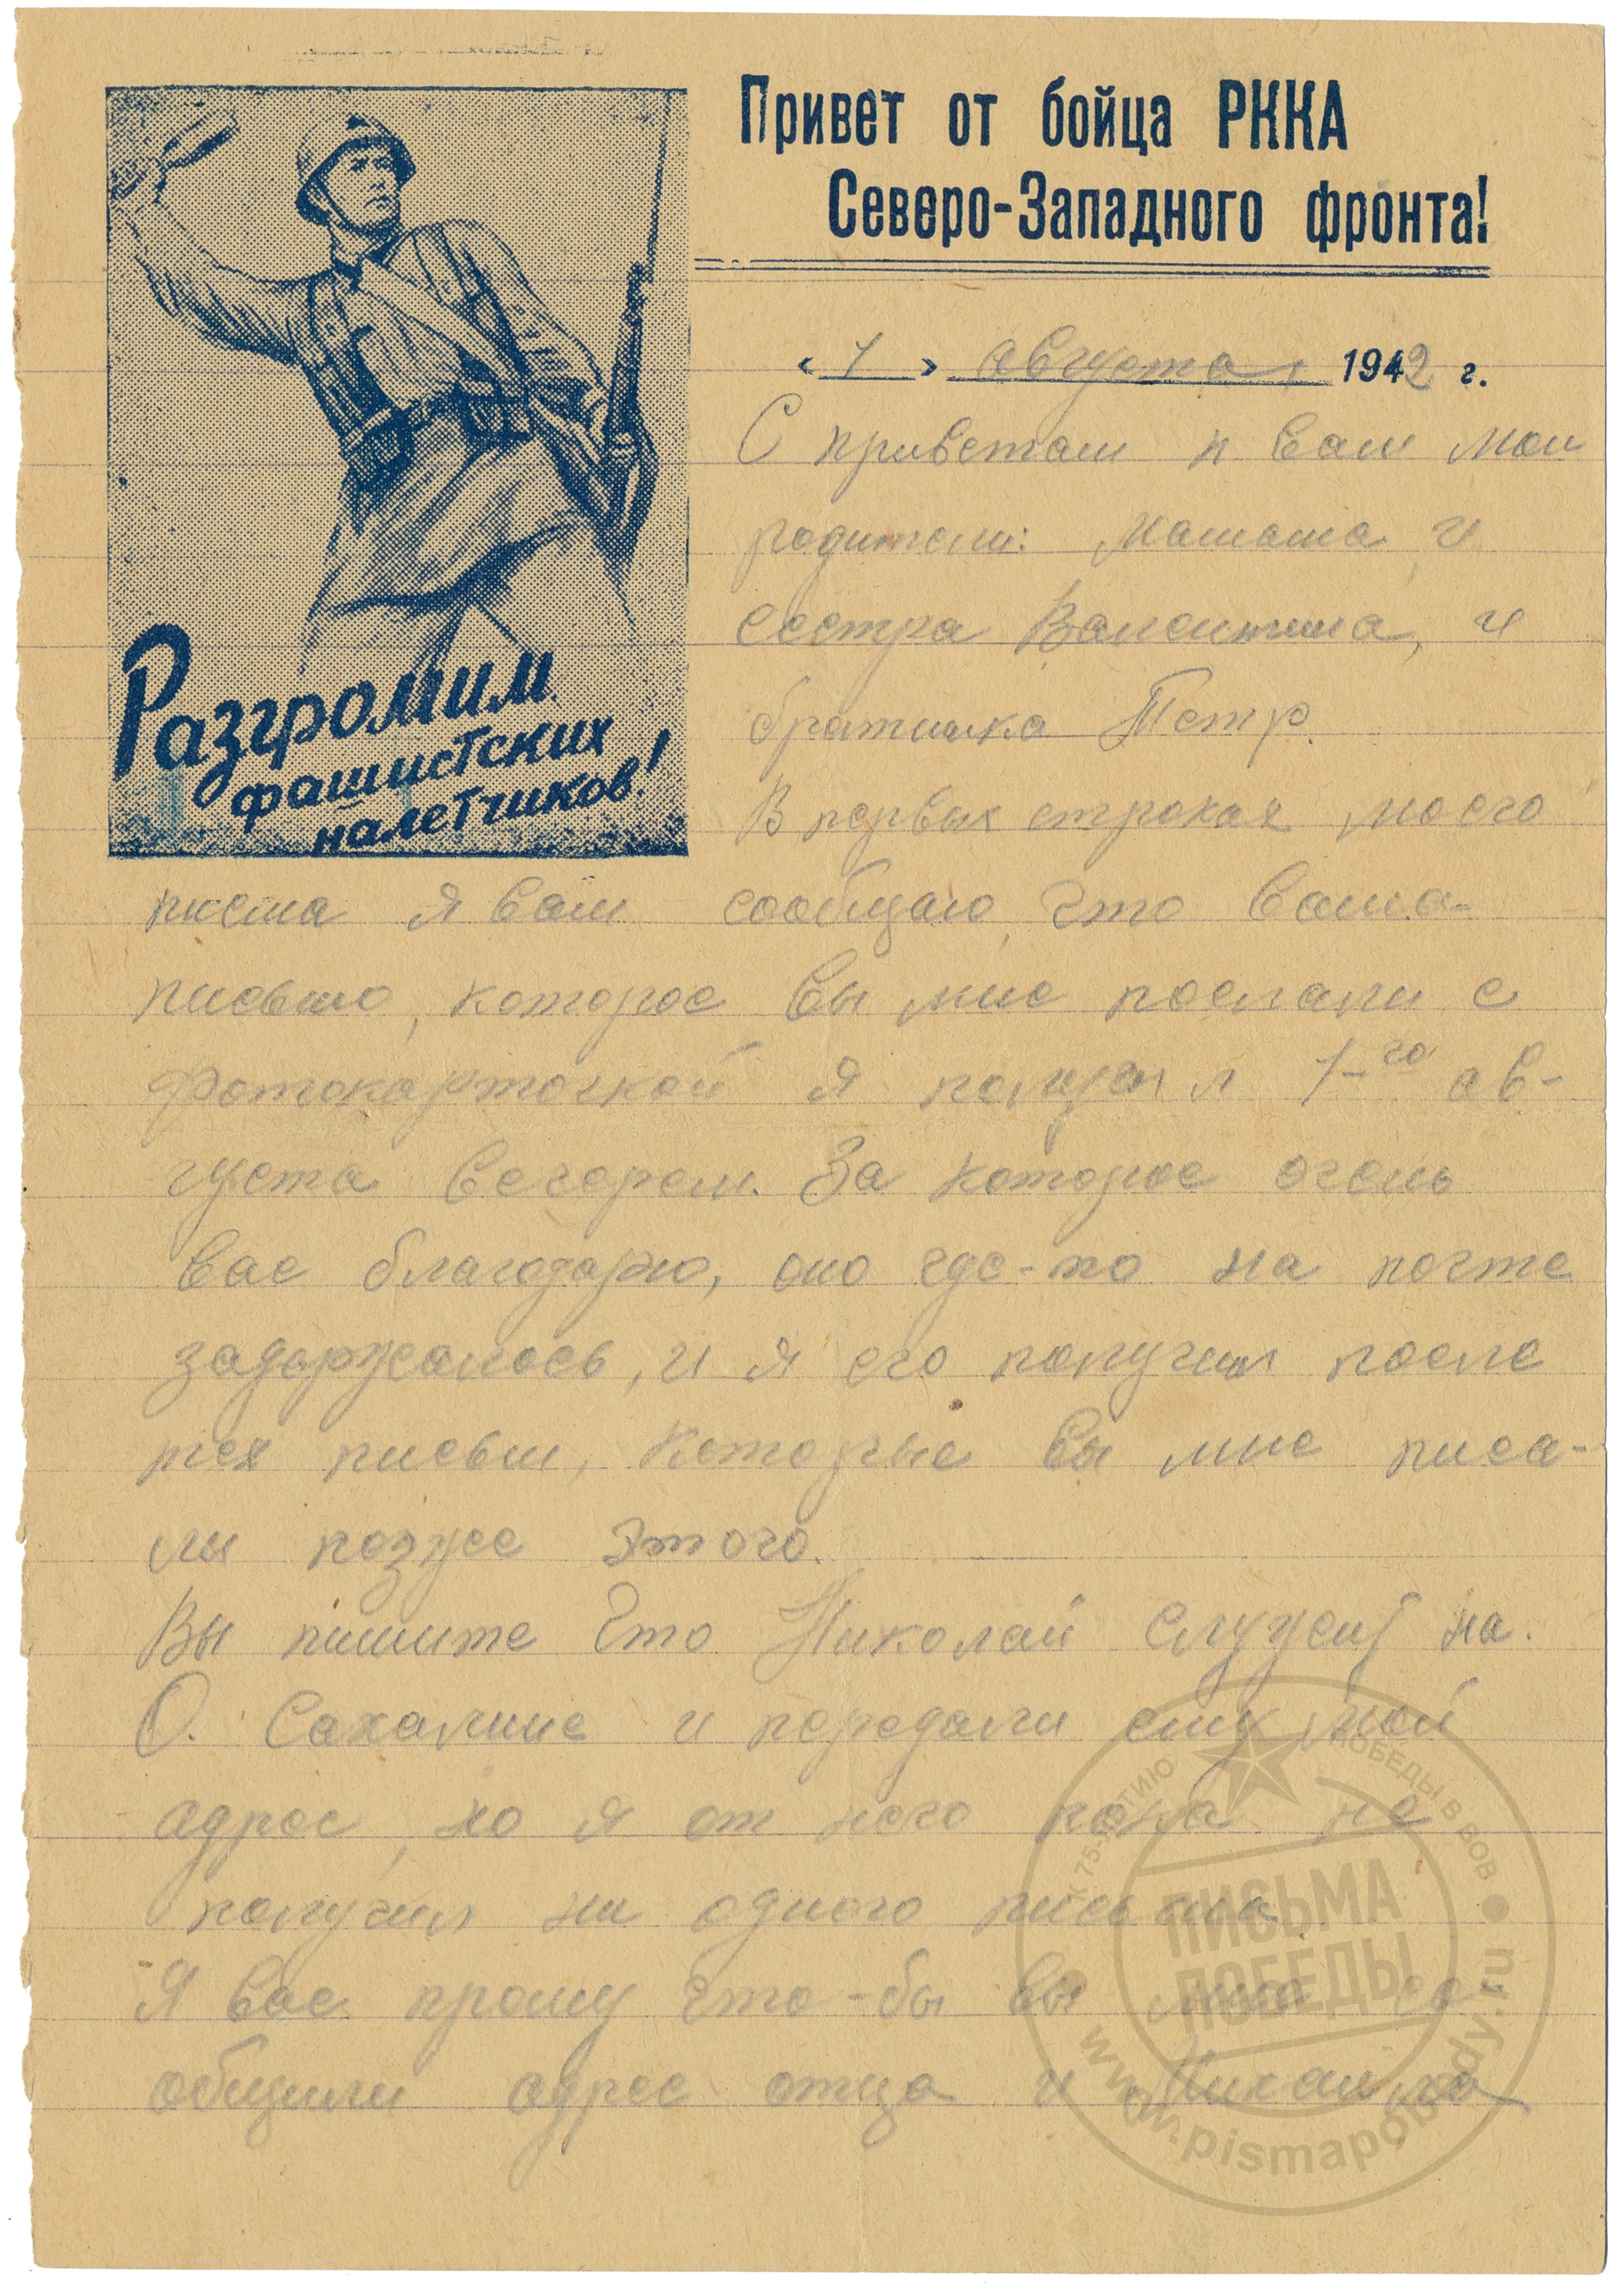 Привет от бойца РККА
Северо-Западного фронта!
Разгромим
фашистских
налетчиков!
« 1 » августа 1942 г.
С приветом к вам мои
родители: Мамаша, и
сестра Валентина, и
братишка Петр.
В первых строках моего
писма я вам сообщаю, что ваша
письмо, которое вы мне послали с
фотокарточкой я получил 1-го ав-
густа вечером. За которое очень
вас благодарю, оно где-то на почте
задержалось, и я его получил после
тех писем, которые вы мне писа-
ли позже этого.
Вы пишите что Николай служит на.
О. Сахалине и передали ему мой
адрес, но я от него пока не
получил ни одного письма.
Я вас прошу что-бы вы мне со-
общили адрес отца и Михаила
К 75-ЛЕТИЮ ПОБЕДЫ В ВОВ
ПИСЬМА
ПОБЕДЫ
www.pismapobedy.ru